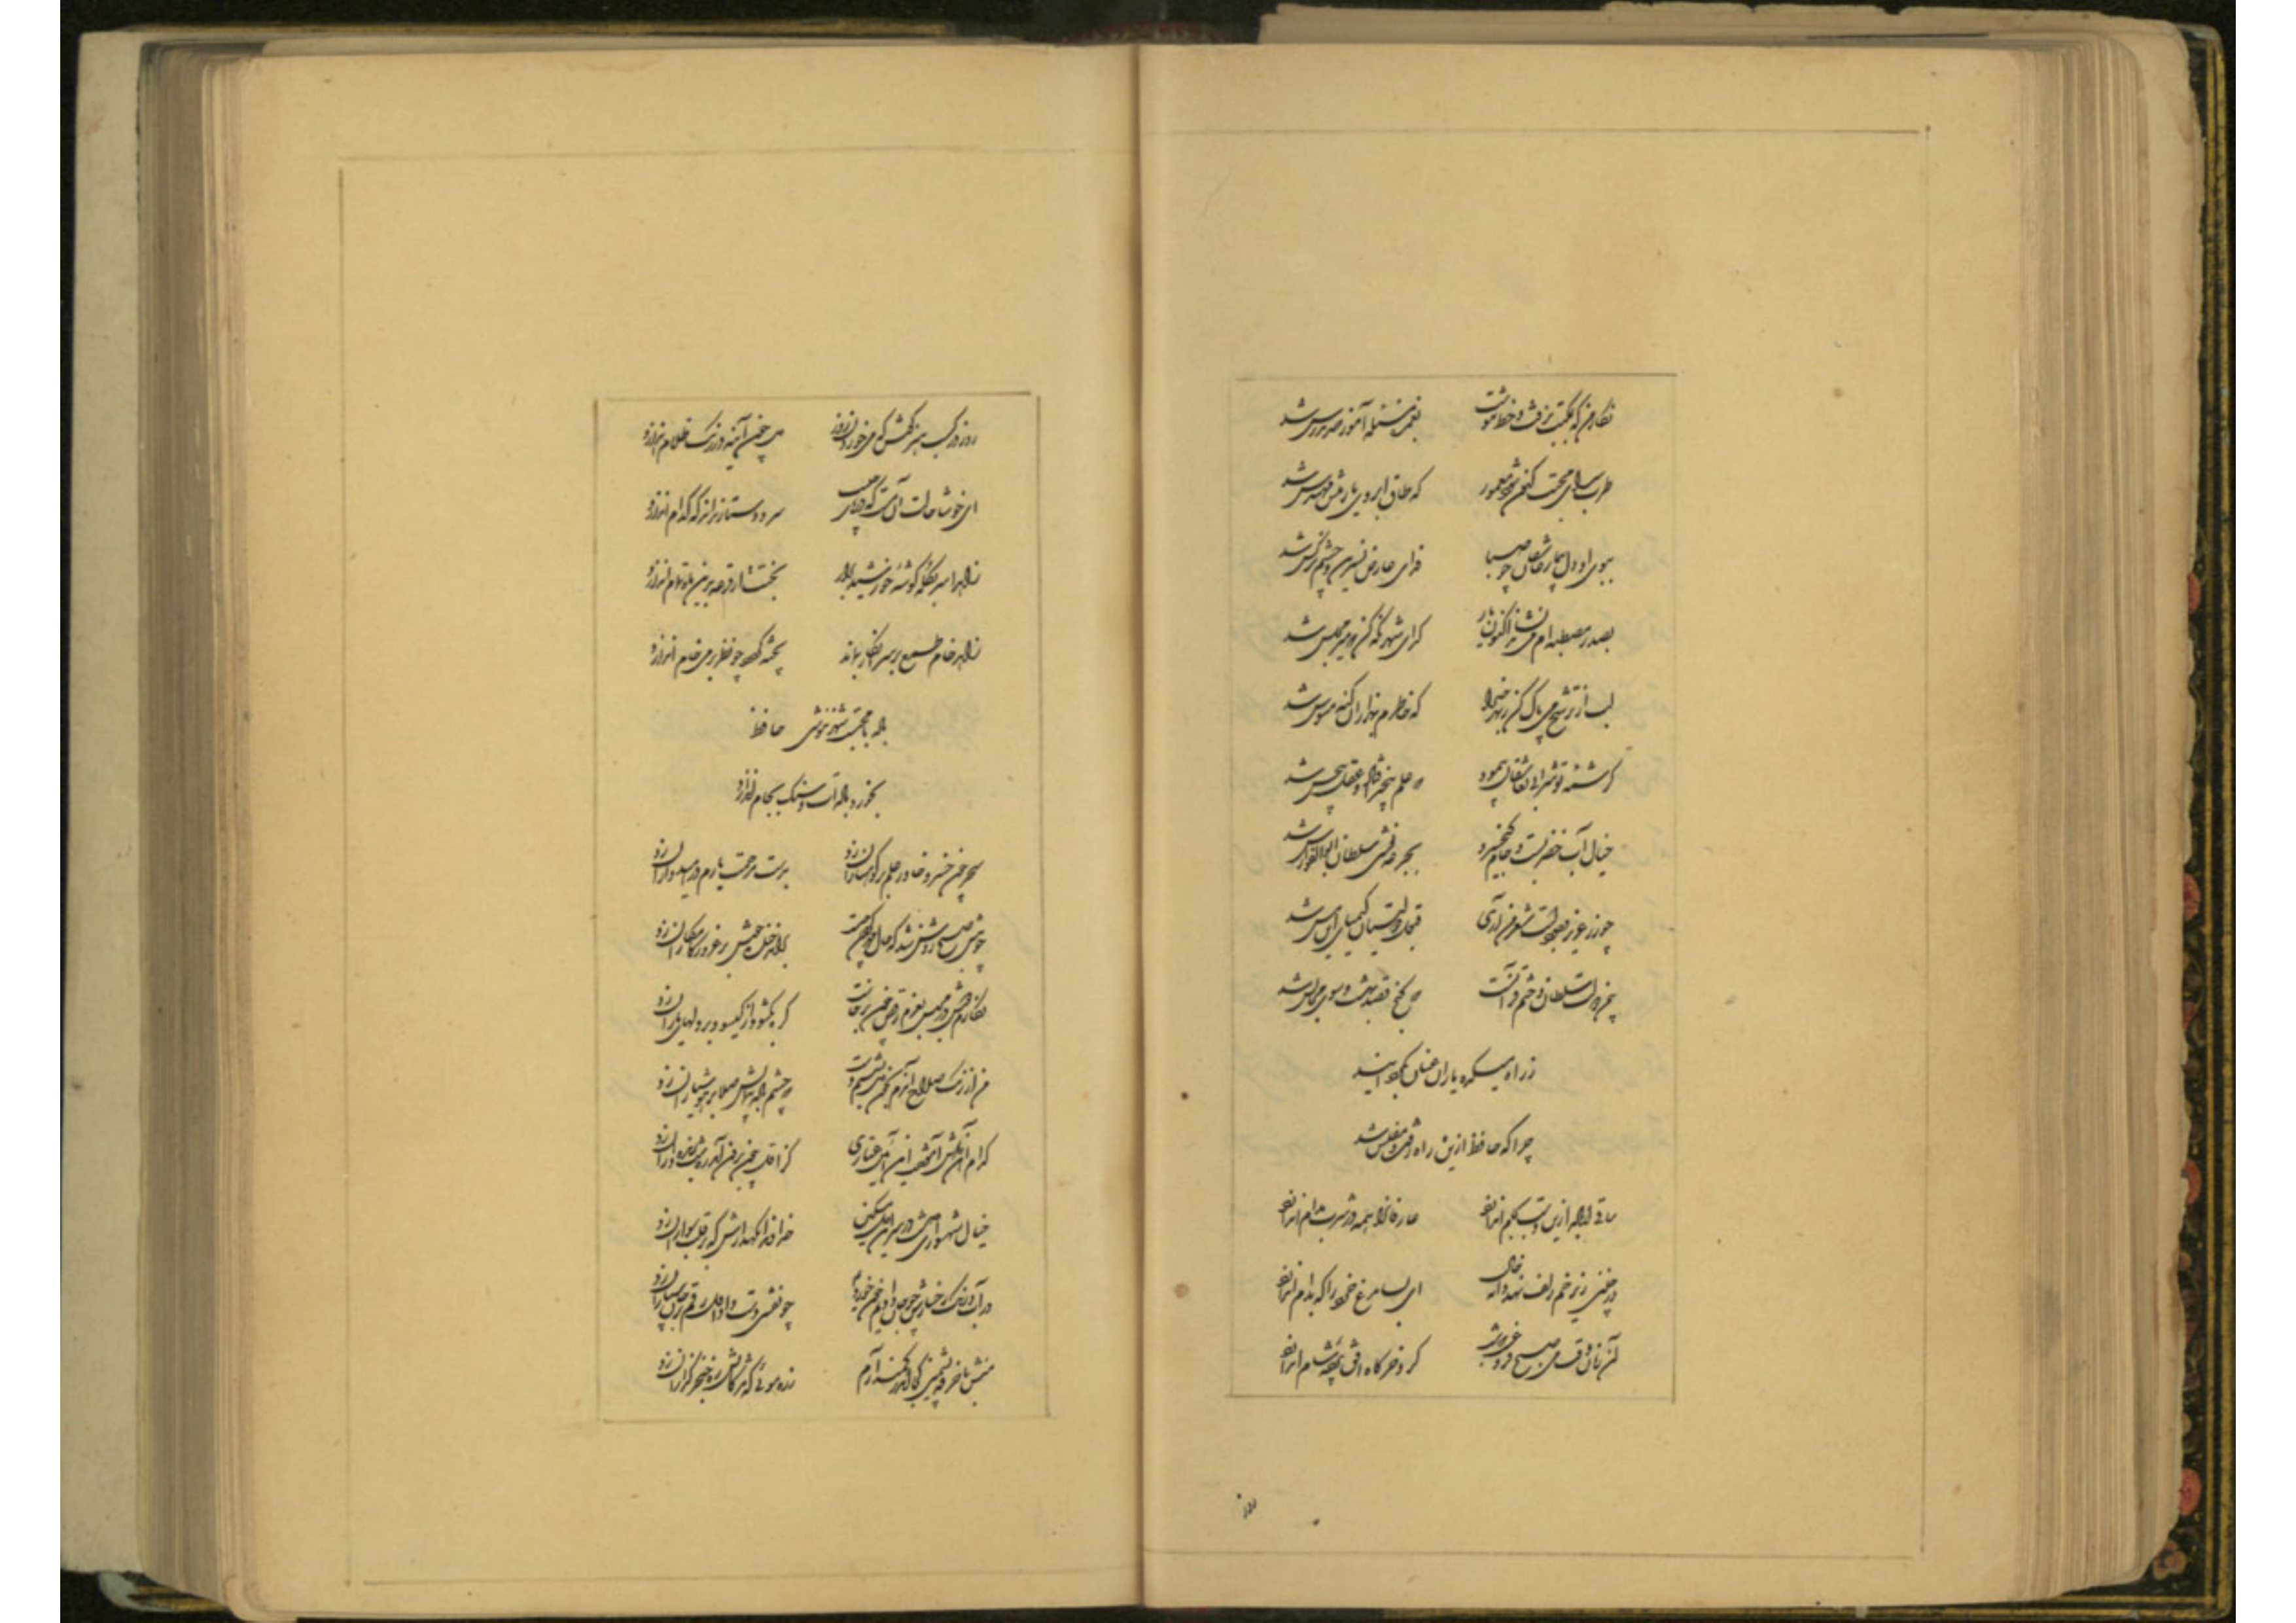 نگار من که بمکتب نرفت و خط ننوشت بغمزه مسئله آموز صد مدرس شد
طرب سرای محبت کنون شود معمور که طاق ابروی یار منش مهندس شد
ببوی او دل بیمار عاشقان چو صبا فدای عارض نسرین و چشم نرگس شد
بصدر مصطبه ام می نشاند اکنون یار گدای شهر نگه کن که میر مجلس شد
لب از ترشح می پاک کن ز بهر خدا که خاطرم بهزاران گنه موسوس شد
کرشمه تو شرابی بعاشقان پیمود که علم بیخبر افتاد و عقل بیحس شد
خیال آب خضر بست و جام کیخسرو بجرعه نوشی سلطان ابوالفوارس شد
چو زر عزیز وجودست شعر من آری قبول دولتیان کیمیای این مس شد
ز راه میکده یاران عنان بگردانید
چرا که حافظ ازین راه رفت و مفلس شد
ساقی ار باده ازین دست بجام اندازد عارفانرا همه در شرب مدام اندازد
ور چنین زیر خم زلف نهد دانه خال ای بسا مرغ خرد را که بدام اندازد
آن زمان وقت می صبح فروغست که شب گرد خرگاه افق پرده شام اندازد
روز
روز در کسب هنر کوش که می خوردن روز دل چون آینه در زنگ ظلام اندازد
ای خوشا حالت آن مست که در پای حبیب سر و دستار نداند که کدام اندازد
زاهدا سر بکله گوشه خورشید برآر بختت ار قرعه برین ماه تمام اندازد
زاهد خام طمع بر سر انکار بماند پخته گردد چو نظر بر می خام اندازد
باده با محتسب شهر ننوشی حافظ
بخورد باده ات و سنگ بجام اندازد
سحر چون خسرو خاور علم بر کوهساران زد بدست مرحمت یارم در امیدواران زد
چو پیش صبح روشن شد که حال مهر گردون چیست برآمد خنده خوش بر غرور کامکاران زد
نگارم دوش در مجلس بعزم رقص چون برخاست گره بگشود از گیسو و بر دلهای یاران زد
من از رنگ صلاح آندم بخون دل بشستم دست که چشم باده پیمایش صلا بر هوشیاران زد
کدام آهن دلش آموخت این آیین عیاری کز اول چون برون آمد ره شب زنده داران زد
خیال شهسواری پخت و شد ناگه دل مسکین خداوندا نگهدارش که بر قلب سواران زد
در آب و رنگ رخسارش چه جان دادیم و خون خوردیم چو نقشش دست داد اول رقم بر جان سپاران زد
منش با خرقه پشمین کجا اندر کمند آرم زره مویی که مژگانش ره خنجر گزاران زد